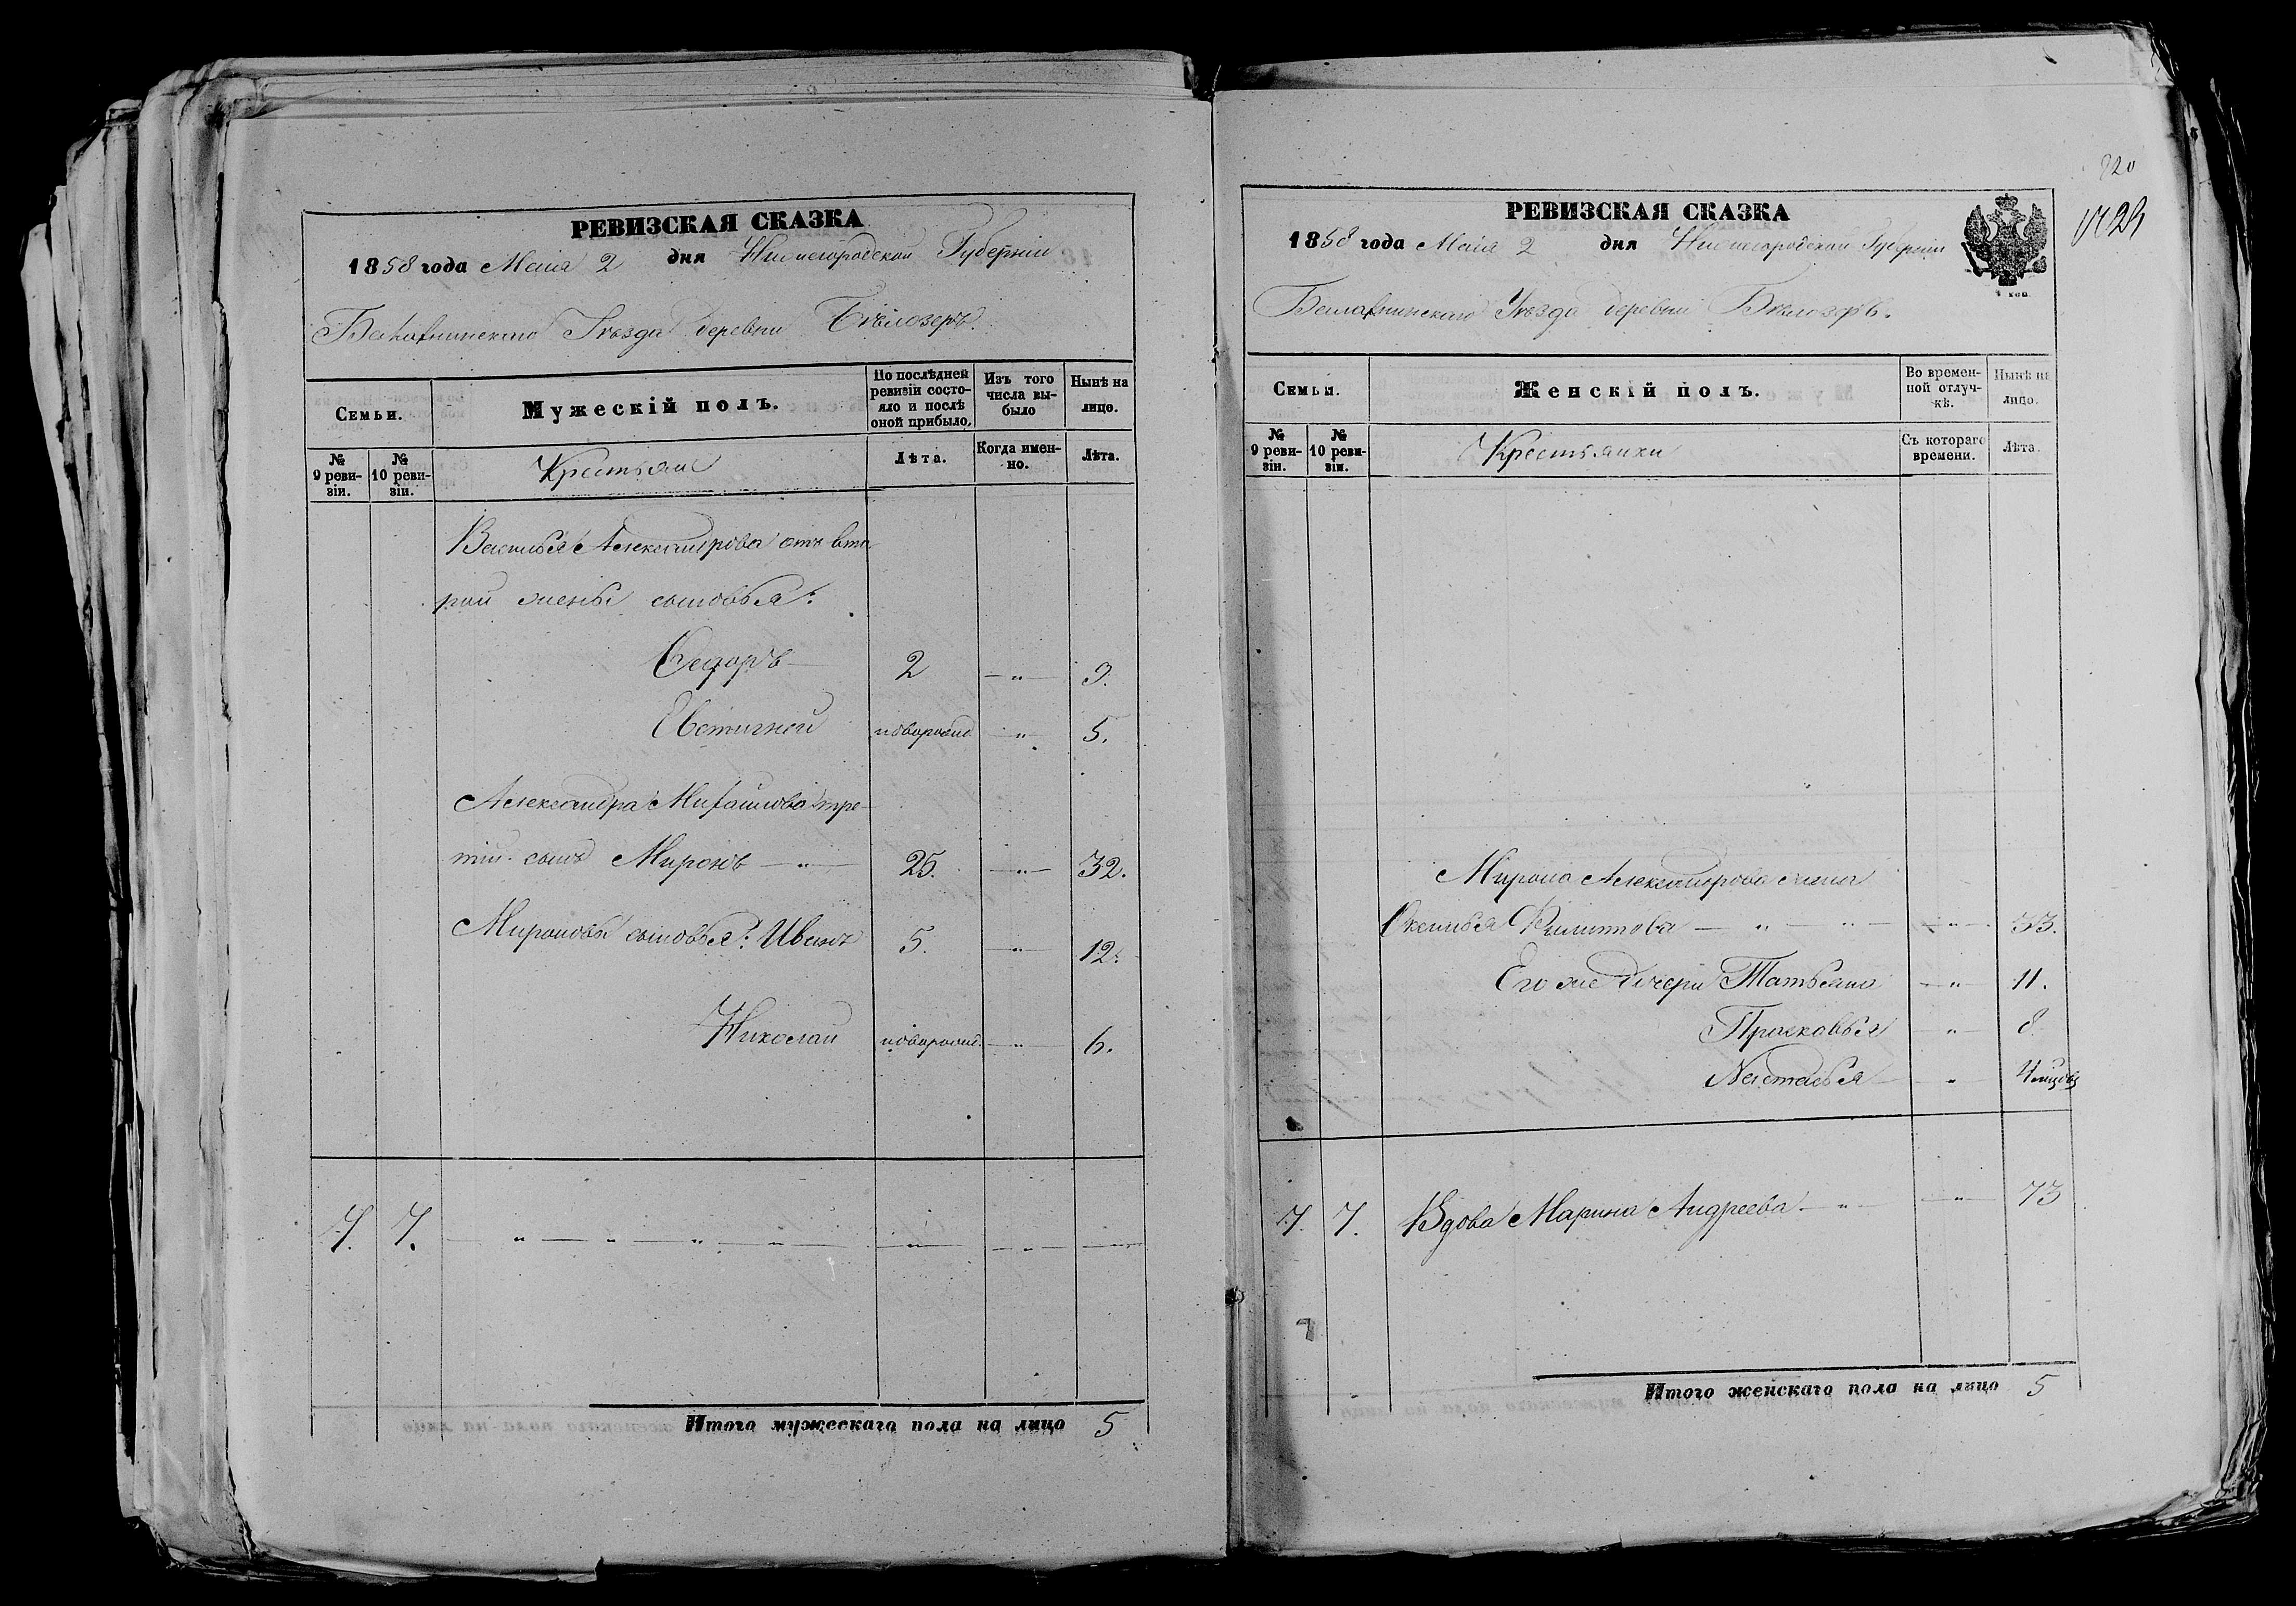 РЕВИЗСКАЯ СКАЗКА
1858 года Маія 2 дня Нижегородской Губерніи
Балахнинскаго Уѣзда деревни Бѣлозеръ.
Семьи.
Мужескій полъ.
По послѣдней ревизіи состояло и послѣ оной прибыло.
Изъ того числа выбыло
Нынѣ на лице.
№ 9 ревизіи.
№ 10 ревизіи.
Крестьяне
Лѣта.
Когда именно.
Лѣта.
Василья Александрова отъ вто
рой жены сыновья:
Федоръ 2 — " — 9.
Евстигней новорожд. — " — 5.
Александра Михайлова тре-
тій сынъ Миронъ — " — 25. — " — 32.
Мироновы сыновья: Иванъ 5. — " — 12.
Николай новорожд. — " — 6.
7. 7. — " — " — " — " — — " — — " — — " —
Итого мужескаго пола на лицо 5
РЕВИЗСКАЯ СКАЗКА
1858 года Маія 2 дня Нижегородской Губерніи
Балахнинскаго Уѣзда деревни Бѣлозеръ.
Семьи.
Женскій полъ.
Во временной отлучкѣ.
Нынѣ на лицо.
№ 9 ревизіи.
№ 10 ревизіи.
Крестьянки
Съ котораго времени.
Лѣта.
Мирона Александрова жена
Аксинья Филиппова — " — " — — " — 33.
Его же дочери Татьяна — " — 11.
Прасковья — " — 8
Настасья — " 4 мѣсяц
7. 7. Вдова Марина Андреева — " — — " — 73
7
Итого женскаго пола на лицо 5